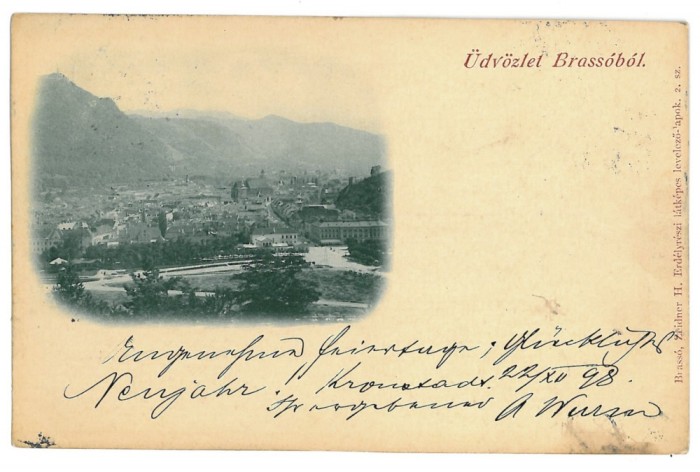 Üdvözlet Brassóból.
Brassó, Zeidner H. Erdélyrészi látképes levelező-lapok. 2. sz.
Angenehme Feiertage, Glückliches
Neujahr. Kronstadt 22/XII 98.
Ihr ergebener A